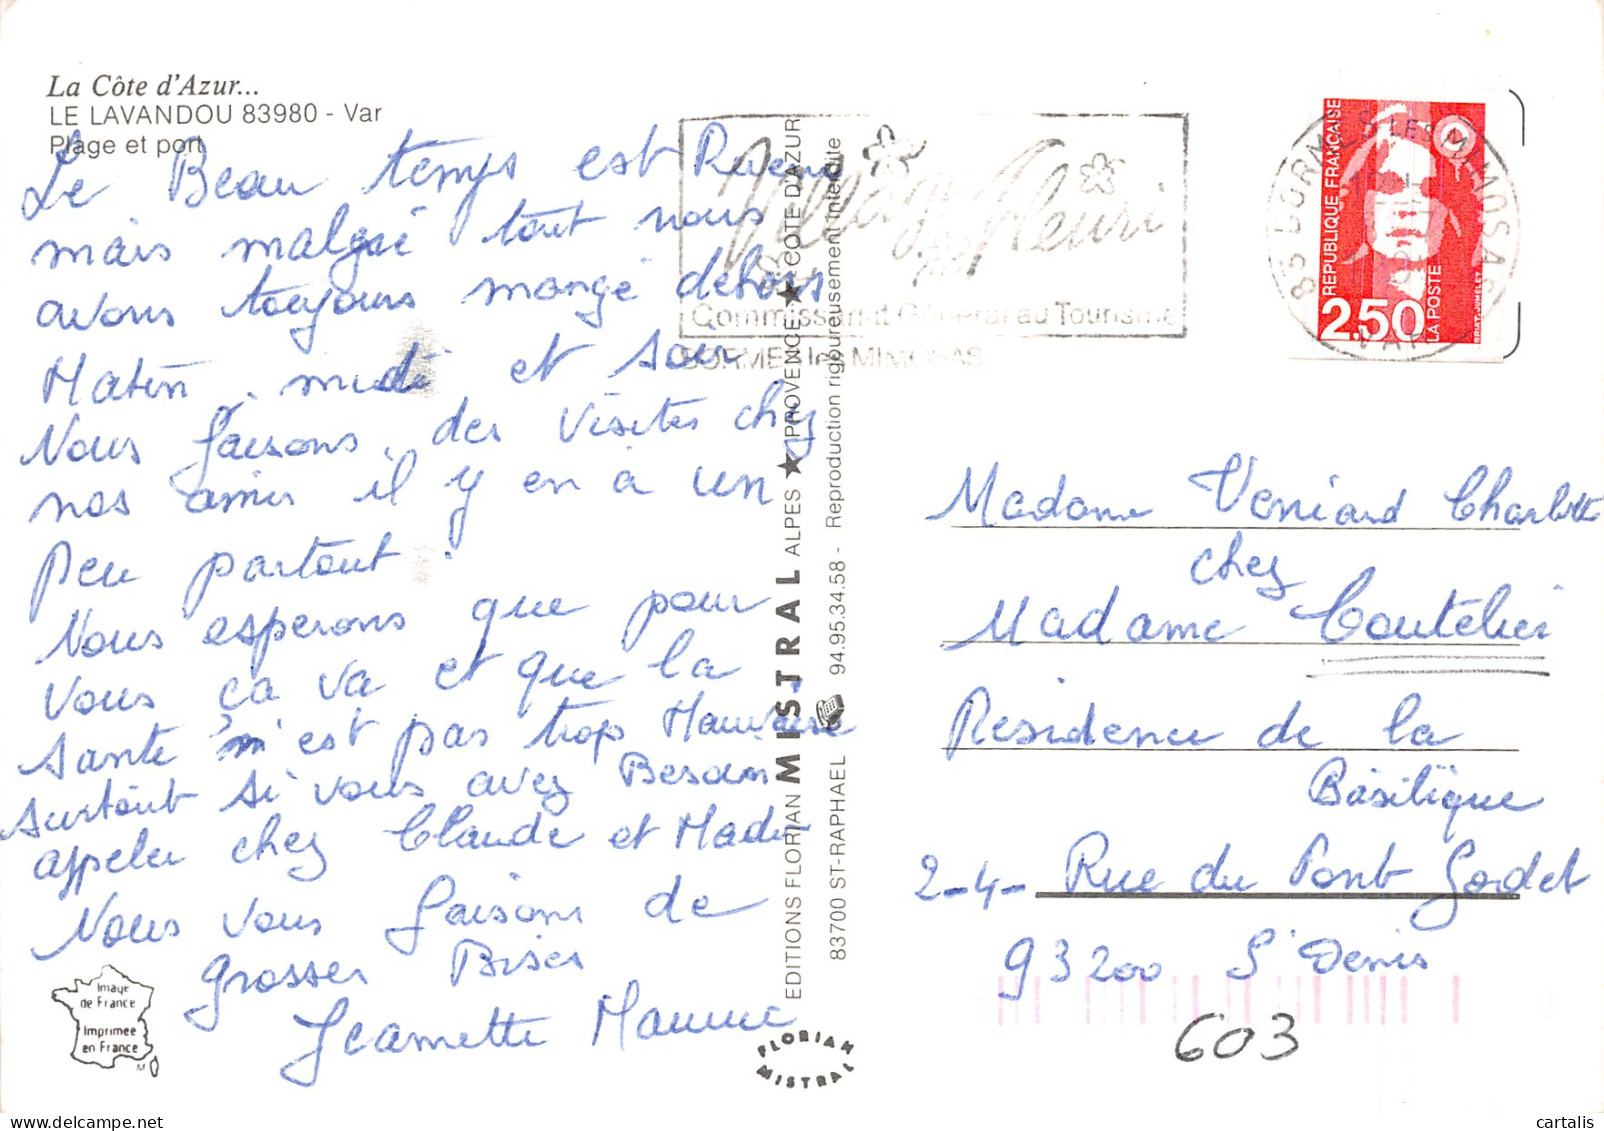 La Côte d'Azur...
LE LAVANDOU 83980 - Var
Plage et port
Le Beau temps est Revenu
mais malgré tout nous
avons toujours mangé dehors
Matin, midi et soir
Nous faisons des visites chez
nos amis il y en à un
peu partout.
Nous esperons que pour
vous ça va et que la
santé n'est pas trop Mauvaise
surtout si vous avez Besoin
appeler chez Claude et Mado
Nous vous faisons de
grosses Bises
Jeannette Maurice
Image
de France
Imprimée
en France
EDITIONS FLORIAN MISTRAL ALPES ★ PROVENCE ★ CÔTE D'AZUR
83700 ST-RAPHAEL 94.95.34.58 - Reproduction rigoureusement interdite
FLORIAN
MISTRAL
Village Fleuri
Commissariat Général au Tourisme
BORMES les MIMOSAS
83 BORMES LES MIMOSAS
VAR
REPUBLIQUE FRANÇAISE
2,50
LA POSTE
BRIAT-JUMELET
Madame Veniard Charlotte
chez
Madame Coutelier
Residence de la
Basilique
2-4- Rue du Pont Godet
93200 St Denis
603
cartalis